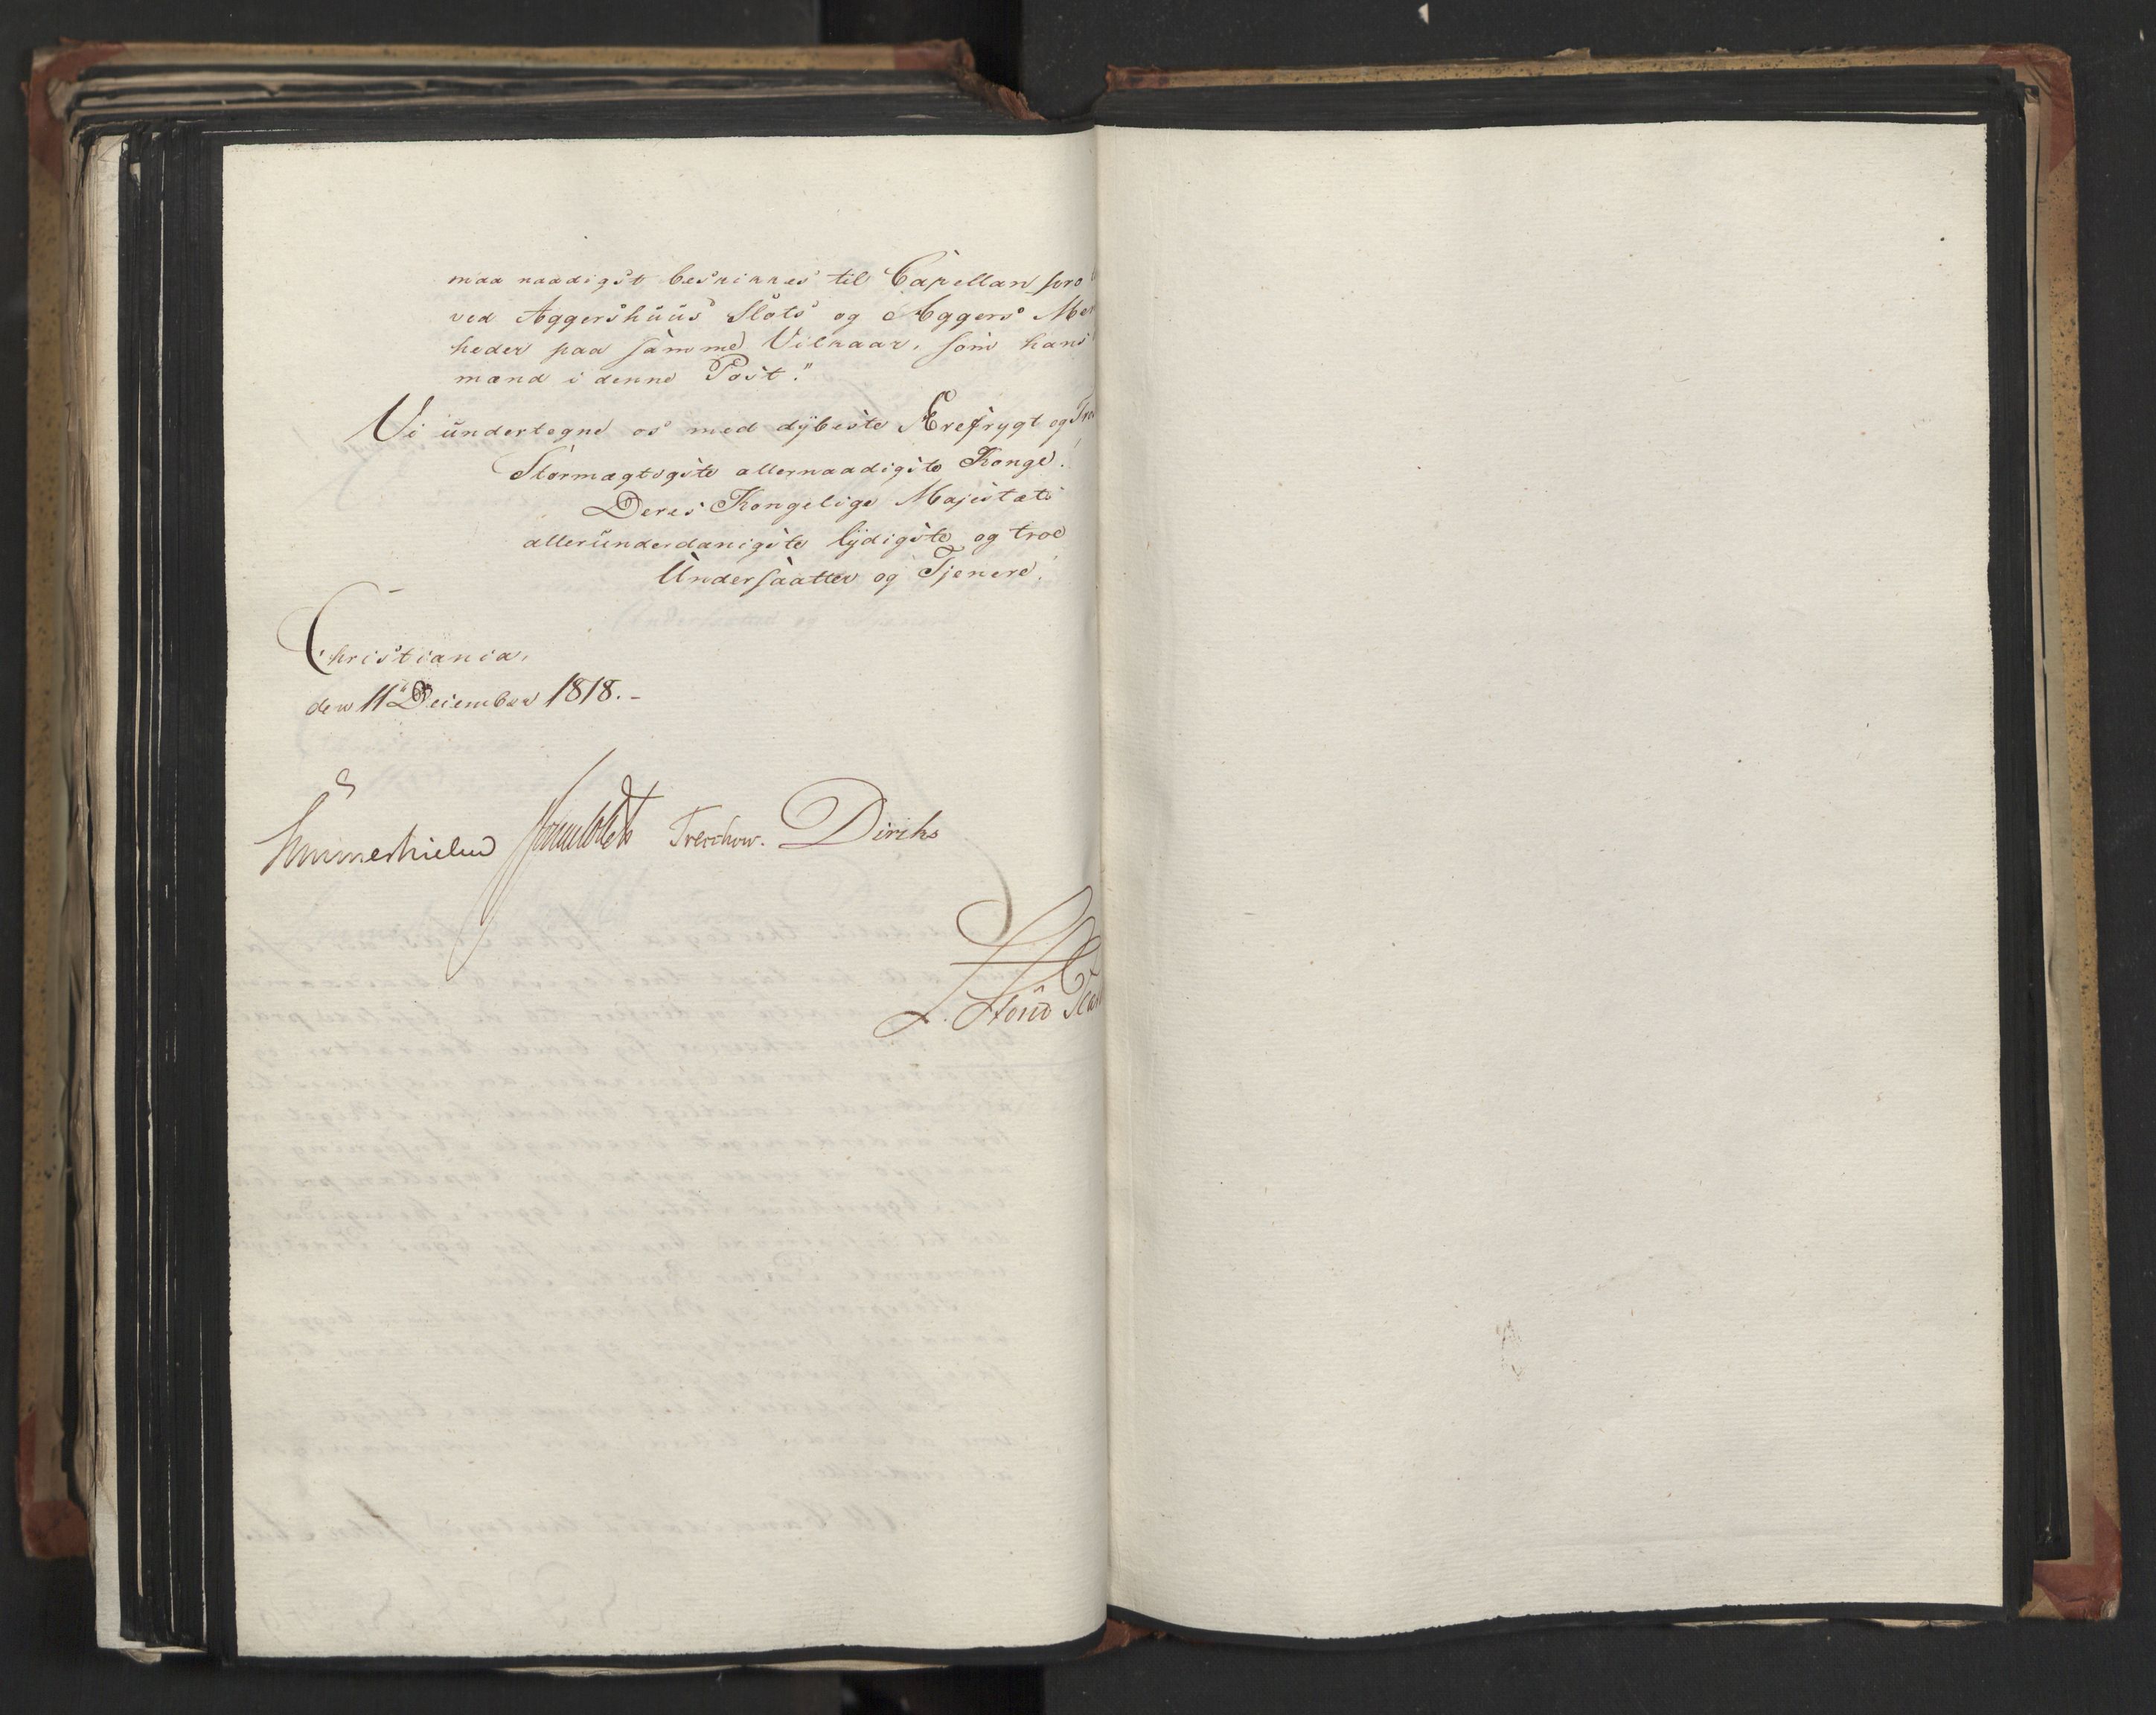 maa naadigst beskikkes til Capellan pro
ved Aggershuus Slots og Aggers Me
heder paa samme Vilkaar, som hans
mænd i denne Post."
Vi undertegne os med dybeste Ærefrygt og Tro
Stormægtigste allernaadigste Konge!
Deres Kongelige Majestæts
allerunderdanigste lydigste og troe
Undersaatter og Tjenere.
Christiania,
den 11te December 1818.-
Sommerhielm Treschow. Diriks